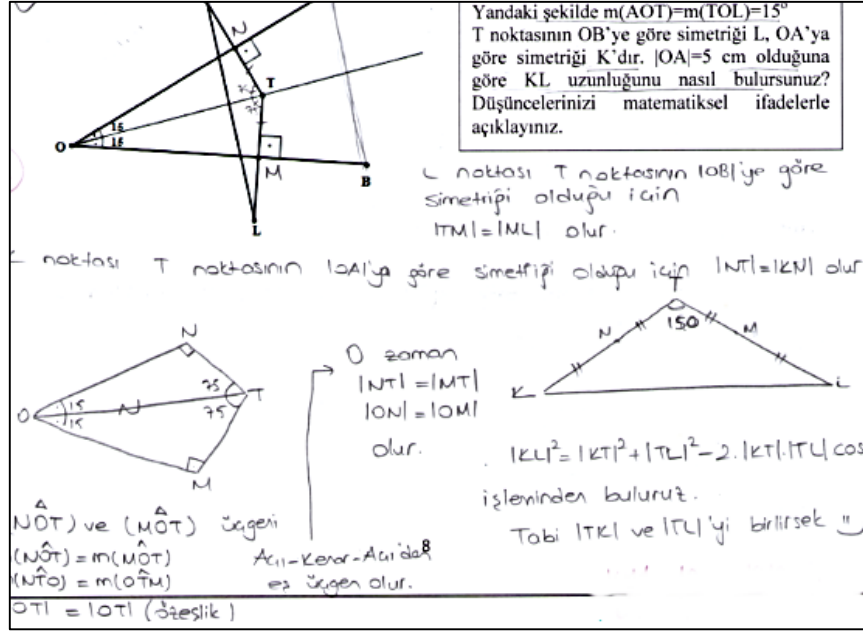 Yandaki şekilde m(AOT)=m(TOL)=15°
T noktasının OB'ye göre simetriği L, OA'ya
göre simetriği K'dır. |OA|=5 cm olduğuna
göre KL uzunluğunu nasıl bulursunuz?
Düşüncelerinizi matematiksel ifadelerle
açıklayınız.
N
T
15
15
O
M
B
L
L noktası T noktasının |OB|'ye göre
simetriği olduğu için
|TM|=|ML| olur.
noktası T noktasının |OA|'ya göre simetriği olduğu için |NT|=|KN| olur
N
O
15
15
75
75
T
M
O zaman
|NT|=|MT|
|ON|=|OM|
olur.
T
150
N
M
K
L
|KL|²=|KT|²+|TL|²-2.|KT|.|TL| cos
işleminden buluruz.
Tabi |TK| ve |TL|'yi bilirsek
(NÔT) ve (MÔT) üçgeni
(NÔT) = m(MÔT)
(NT̂O) = m(OT̂M)
OT| = |OT| (özeşlik)
Açı-Kenar-Açı'dan
eş üçgen olur.
8